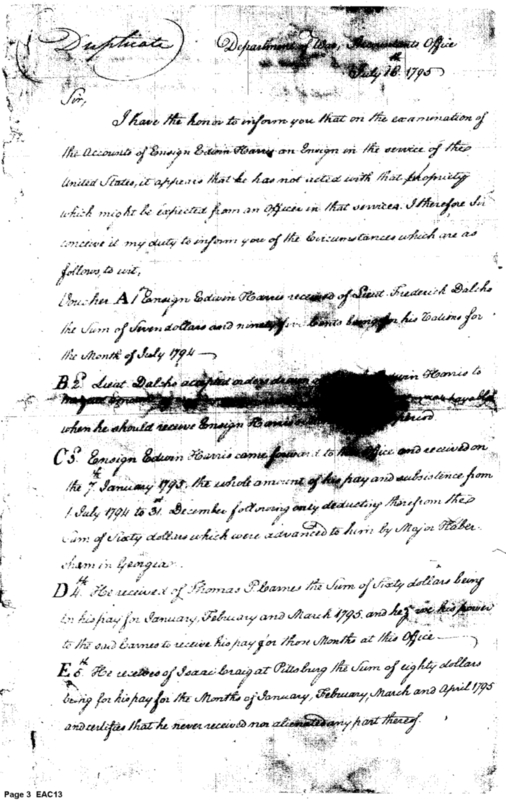 Duplicate
Department of War, Accountants Office
July 18th 1795
Sir,
I have the honor to inform you that on the examination of
the Accounts of Ensign Edwin Harris an Ensign in the service of the
United States, it appears that he has not acted with that propriety
which might be expected from an Officer in that service. I therefore Sir
conceive it my duty to inform you of the Circumstances which are as
follows, to wit,
Voucher A 1st Ensign Edwin Harris received of Lieut. Frederick Dalcho
the Sum of Seven dollars and ninety five Cents being for his Rations for
the Month of July 1794
B 2d Lieut Dalcho accepted orders drawn Edwin Harris to
payable
when he should receive Ensign Harris's period
C 3d Ensign Edwin Harris came forward to this Office and received on
the 7th January 1795, the whole amount of his pay and subsistence from
1 July 1794 to 31st December following only deducting therefrom the
Sum of Sixty dollars which were advanced to him by Major Haber-
sham in Georgia
D 4th He received of Thomas P. Carnes the Sum of Sixty dollars being
for his pay for January, February and March 1795, and he gave his power
to the said Carnes to receive his pay for those Months at this Office
E 5th He receives of Isaac Craig at Pittsburg the Sum of eighty dollars
being for his pay for the Months of January, February, March and April 1795
and certifies that he never received nor alienated any part thereof.
Page 3 EAC13